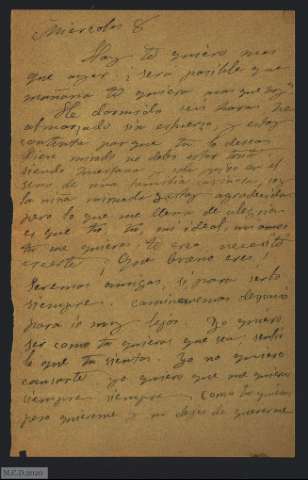 Miércoles 8
Hoy te quiero mas
que ayer; ¿será posible que
mañana te quiera mas que hoy?
He dormido seis horas he
almorzado sin esfuerzo y estoy
contenta porque tu lo deseas
Bien mirado no debo estar triste
siendo y vivo en el
seno de una familia soy
la niña mimada y estoy agradecida
pero lo que me llena de alegria
es que tú, tú, mi ideal, mi amor
tu me quieres, te creo, necesito
creerte! Que bueno eres!
Seremos amigas, si para serlo
siempre. caminaremos despacio
para ir muy lejos. Yo quiero
ser como tu quieras que sea, sentir
lo que tu sientas. Yo no quiero
cansarte yo quiero que me quieras
siempre siempre, como tu quieras
pero quiereme y no dejes de quererme
M.E.D.2020